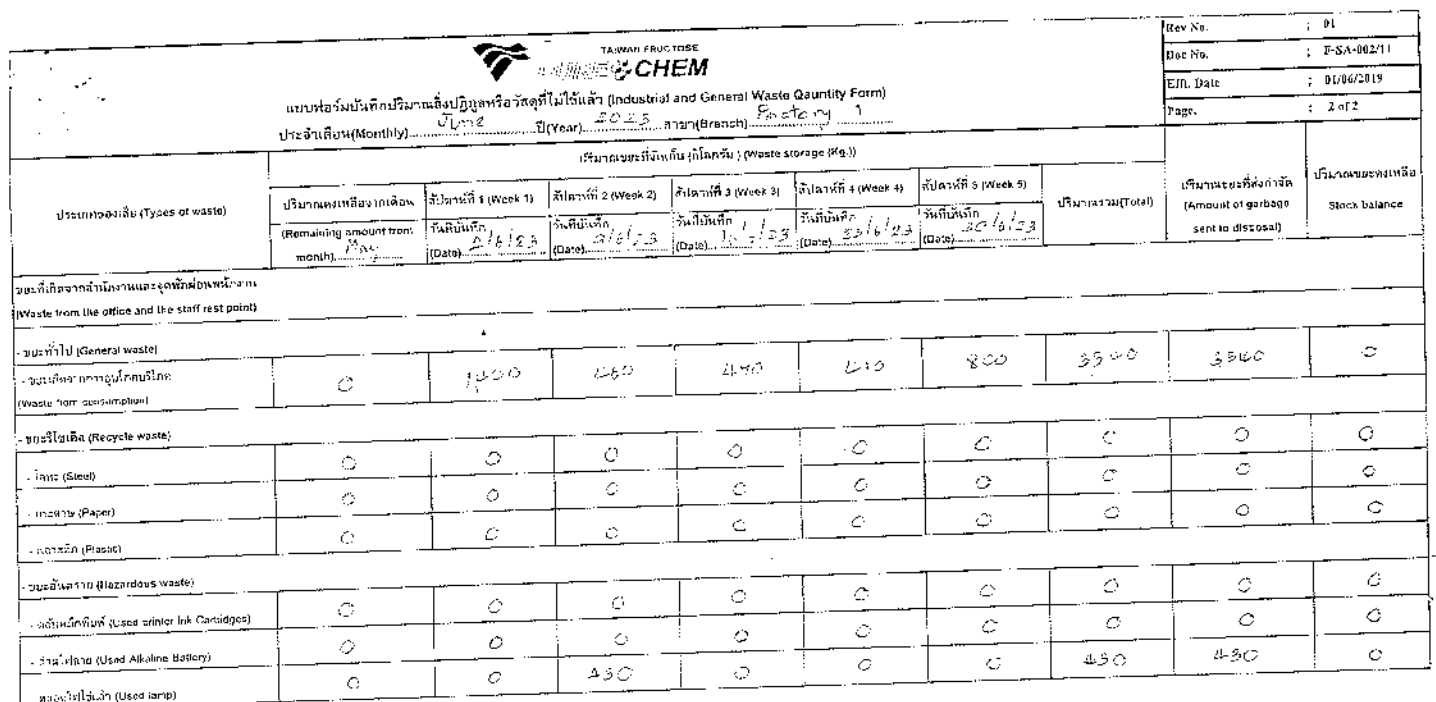 Rev No. : 01
TAIWAN FRUCTOSE
CHEM
Doc No. : F-SA-002/11
Effi. Date : 01/06/2019
แบบฟอร์มบันทึกปริมาณสิ่งปฏิกูลหรือวัสดุที่ไม่ใช้แล้ว (Industrial and General Waste Qauntity Form)
Page. : 2 of 2
ประจำเดือน(Monthly) June ปี(Year) 2023 สาขา(Branch) Factory 1
ปริมาณขยะที่จัดเก็บ (กิโลกรัม) (Waste storage (Kg.))
ประเภทของเสีย (Types of waste)
ปริมาณคงเหลือจากเดือน
(Remaining amount from
month) May
สัปดาห์ที่ 1 (Week 1)
วันที่บันทึก
(Date)
สัปดาห์ที่ 2 (Week 2)
วันที่บันทึก
(Date)
สัปดาห์ที่ 3 (Week 3)
วันที่บันทึก
(Date)
สัปดาห์ที่ 4 (Week 4)
วันที่บันทึก
(Date)
สัปดาห์ที่ 5 (Week 5)
วันที่บันทึก
(Date) 30/6/23
ปริมาณรวม(Total)
ปริมาณขยะที่ส่งกำจัด
(Amount of garbage
sent to disposal)
ปริมาณขยะคงเหลือ
Stock balance
ขยะที่เกิดจากสำนักงานและจุดพักผ่อนพนักงาน
(Waste from the office and the staff rest point)
- ขยะทั่วไป (General waste)
- ขยะเกิดจากการอุปโภคบริโภค
(Waste from consumption)
0 1400 460 800 3540 3540 0
- ขยะรีไซเคิล (Recycle waste)
- โลหะ (Steel) 0 0 0 0 0 0 0 0 0
- กระดาษ (Paper) 0 0 0 0 0 0 0 0 0
- พลาสติก (Plastic) 0 0 0 0 0 0 0 0 0
- ขยะอันตราย (Hazardous waste)
- ตลับหมึกพิมพ์ (Used printer Ink Cartridges) 0 0 0 0 0 0 0 0 0
- ถ่านไฟฉาย (Used Alkaline Battery) 0 0 0 0 0 0 0 0 0
หลอดไฟใช้แล้ว (Used lamp) 0 0 430 0 0 0 430 430 0